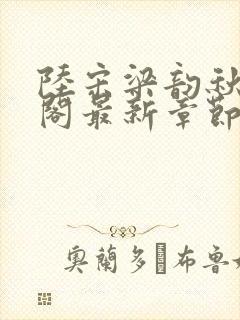 陸宗梁韵秋
閣最新章節
奧蘭多·布魯